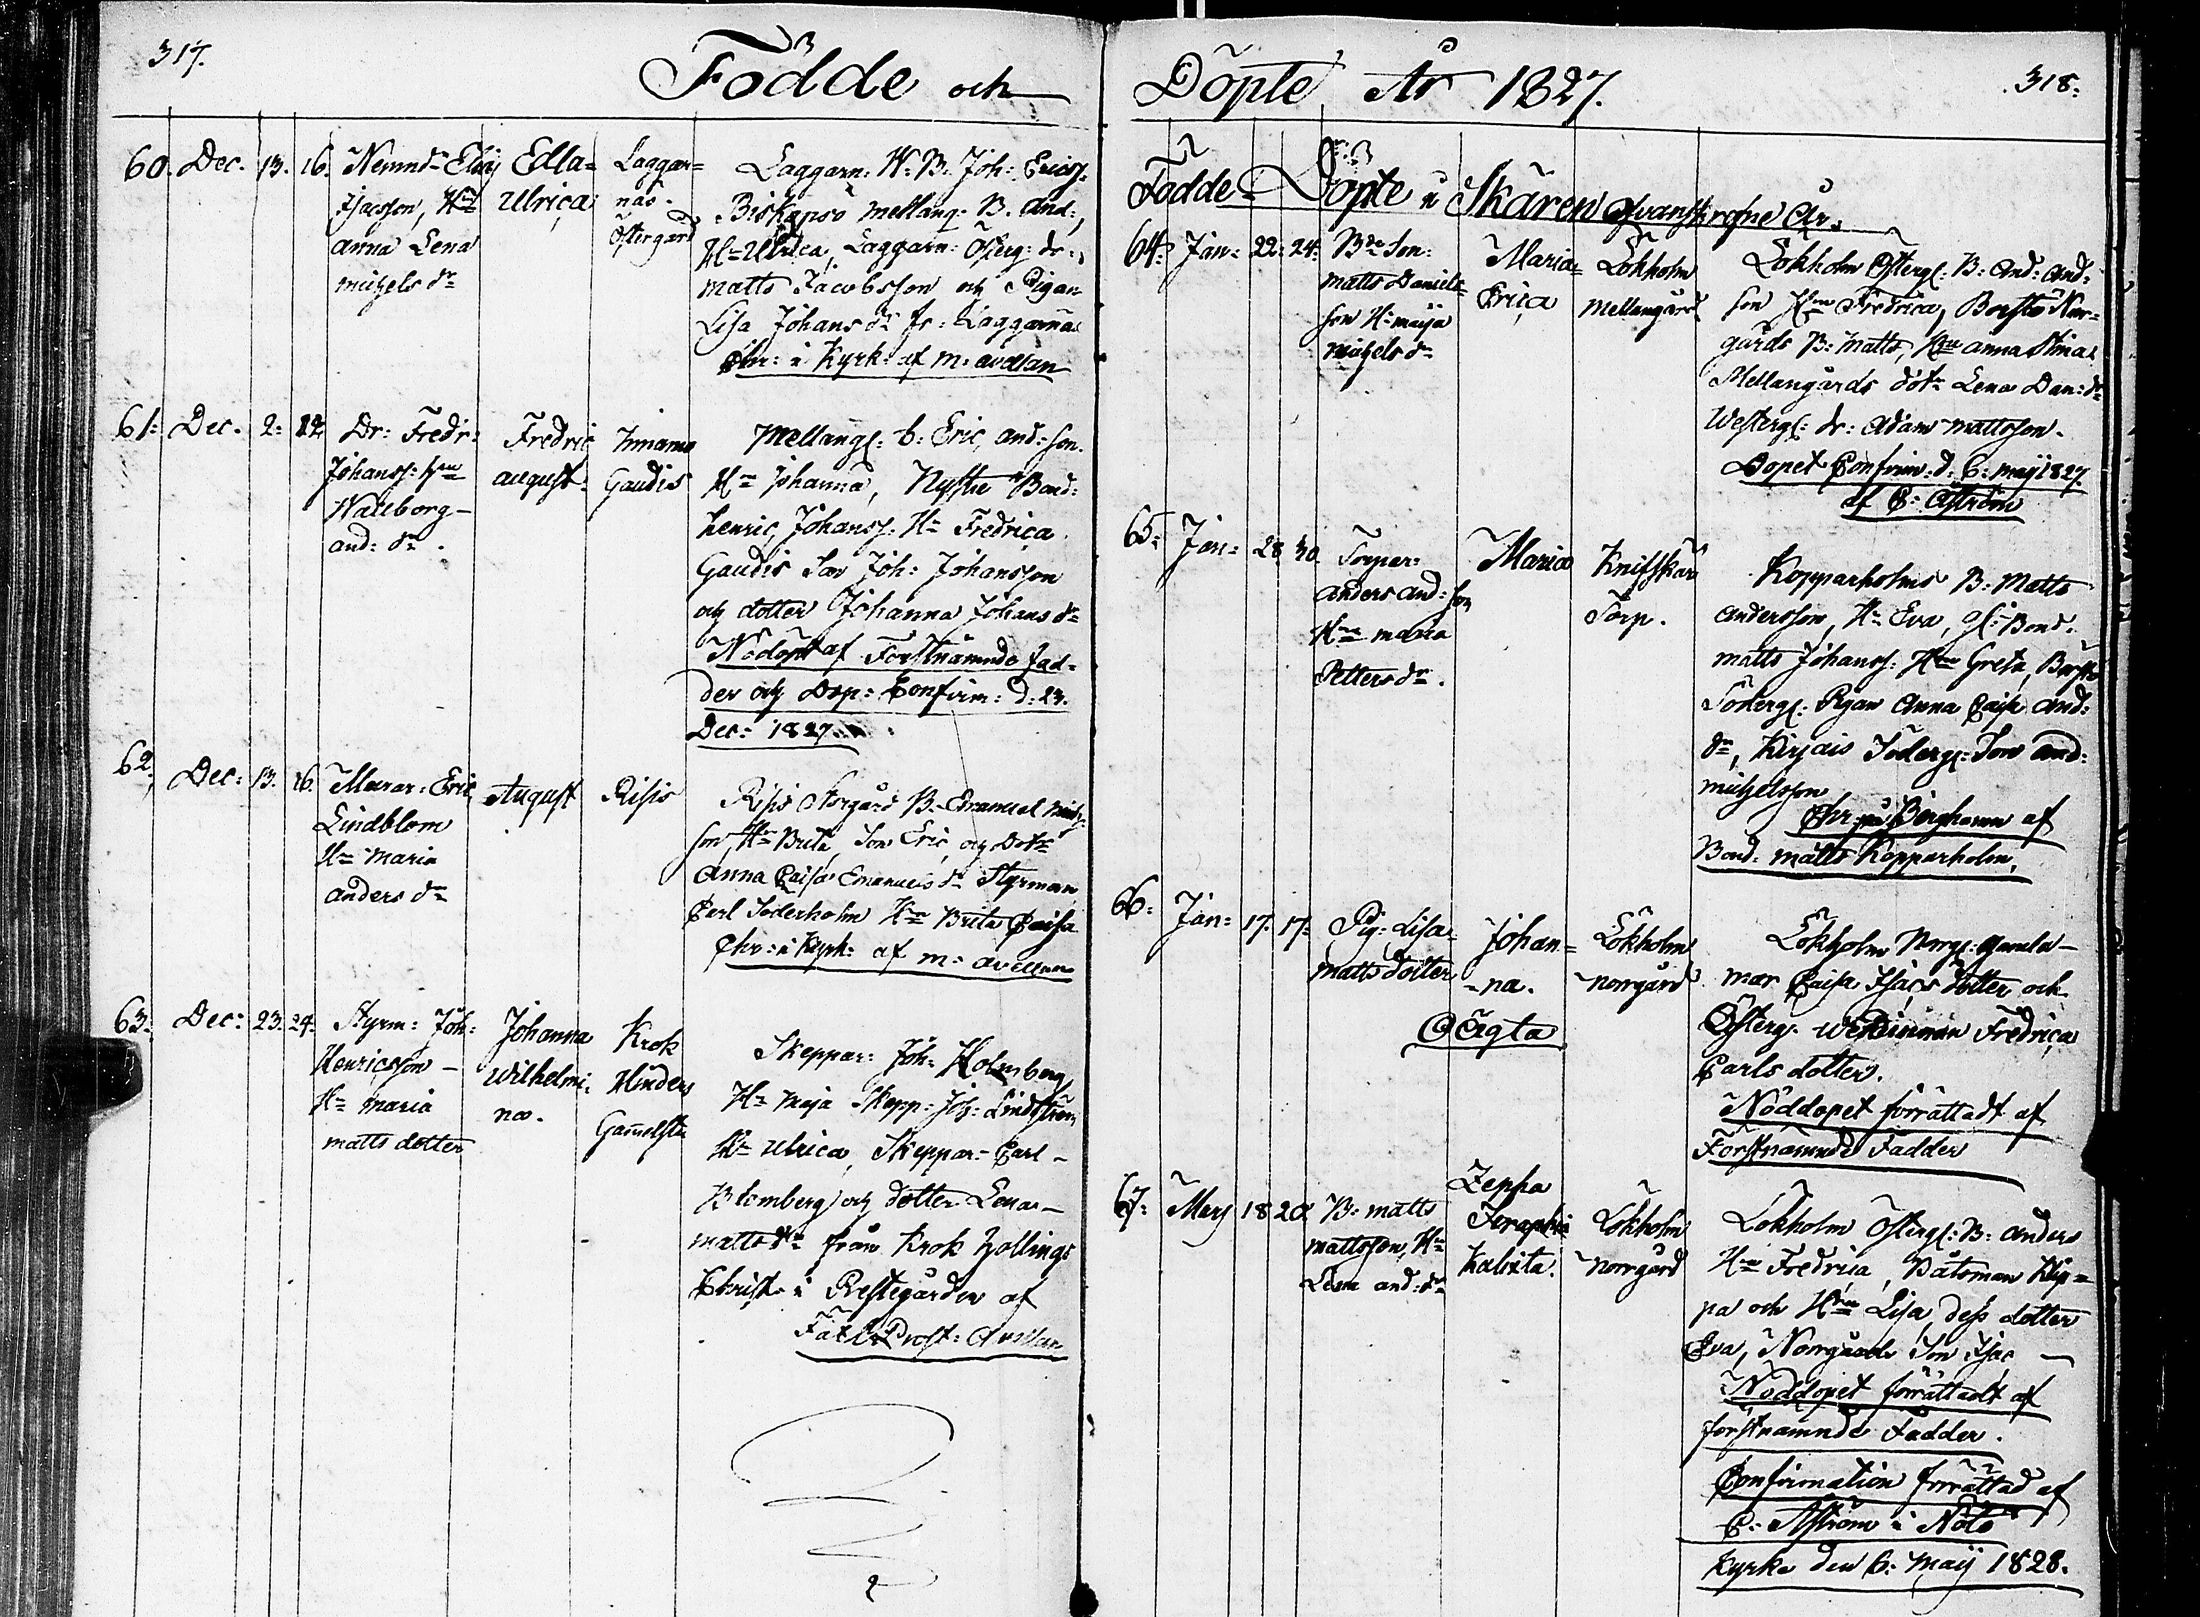 317.
Födde och
60. Dec. 13. 16. Nemnd:
Isacsson, Hn
Anna Lena
michels dr
Edla=
Ulrica
Laggar=
näs.
Östergård
Laggarn: W. B. Joh: Ericss.
Biskopsö mellang. B. And:,
Hn Ulrica, Laggarn: Österg: dr:,
matts Jacobsson och Pigan
Lisa Johans dr fr: Laggarnäs
Chr: i Kyrk: af m: avellan
61: Dec. 2:
Dr: Fredr:
Johanss: Hn
Walborg
and: dr.
Fredric
august.
Gaudis
Mellang: b: Eric, and: son.
Hn Johanna, Bond:
henric, Johanss: Hn Fredrica
Gaudis Son Joh: Johansson
och dotter Johanna Johans dr
Nödöpt af Förstnämnde fad=
der och Dop: Confirm: d: 23.
Dec: 1827
62. Dec: 13. 16.
Murar: Eric
Lindblom
Hn Maria
anders dr
August
Risis
Risis Norgård B. Emanuel
son, Hn Brita, Son Eric, och Dotr
Anna Caisa Emanuels dr Styrman
Carl Söderholm Hn Brita Caisa
Chr: i Kyrk: af m: avellan
63. Dec: 23. 24.
Styrm: Joh:
Henricsson
Hn maria
matts dotter
Johanna
Wilhelmi=
na.
Krok
Hinders
Skeppar: Joh: Holmberg
Hn Maja Skepp: Joh: Lindström
Hn Ulrica, Skeppar= Carl
Blomberg och dotter Lena
matts dr från Krok
Christ. i Prestegården af
Prost: Avellan
Döpte År 1827.
318.
Födde Döpte i Skären Ofvanskrefne År.
64: Jan= 22: 24:
Bde Son:
matts Daniels=
son Hn maija
michels dr
Maria=
Erica
Lökholm
Mellangård
Lökholm Österg: B: And: And=
son Hn Fredrica, Borstö Nor=
gårds B: Matts, Hn anna Stina
Mellangårds dotr Lena Dan: dr
Westerg: dr: Adam mattsson.
Dopet Confirm: d. 6: maij 1827.
af C: Åström
65: Jan= 28. 30.
Torpar:
anders and: son
Hn maria
Petters dr.
Maria
Knifskär
Torp.
Kopparholms B: Matts
andersson, Hn Eva, Gl: Bond:
matts Johanss: Hn Greta, Borstö
Söderg: Pigan Anna Caisa And:
dr, Kirjais Söderg: Son and:
michelsson
Chr: på Berghamn af
Bond: matts Kopparholm.
66: Jan= 17. 17:
Pig: Lisa
matts dotter
Oägta
Johan=
na.
Lökholm
norrgård
Lökholm Norg: Gamla
mor Caisa Isacs dotter och
Österg: Fredrica
Carls dotter.
Nöddopet förrättadt af
Förstnämnde Fadder
67: Mars 18 20
B: matts
mattsson, Hn
Lena and: dr
Zeppa
Seraphia
Kalixta.
Lökholm
norrgård
Lökholm Österg: B: anders
Hn Fredrica, Båtsman Klip=
pa och Hn Lisa, dess dotter
Eva, Norrgårds Son Isac
Nöddopet förrättadt af
förstnämnde Fadder.
Confirmation förrättad af
C: Åström i Nötö
Kyrka den 6: maij 1828.